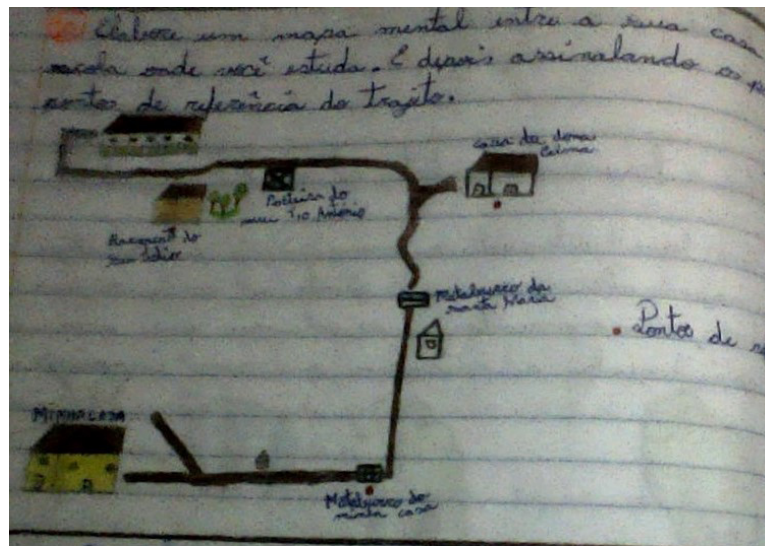 Elabore um mapa mental entre a sua casa
escola onde você estuda. E depois assinalando os
pontos de referência do trajeto.
casa da dona
Celma
Porteira do
meu Tio Antônio
do
Mataburro da
santa Maria
Pontos de
MINHA CASA
Mataburro do
minha casa